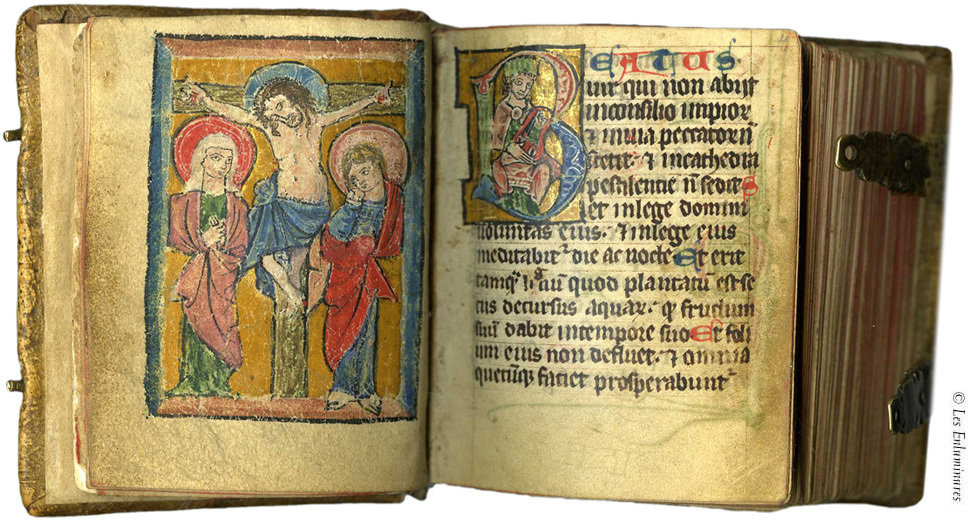 BEATUS
uir qui non abijt
inconsilio impior
& inuia peccatorū
stetit. & incathedra
pestilentie n̄ sedit
Set inlege domini
uoluntas eius. & inlege eius
meditabit᷑ die ac nocte Et erit
tamqͣ lignū quod plantatū est se
cus decursus aquar. qͦ fructum
suū dabit intempore suo Et foli
um eius non defluet. & omnia
quecūqꝫ faciet prosperabunt᷑
© Les Enluminures